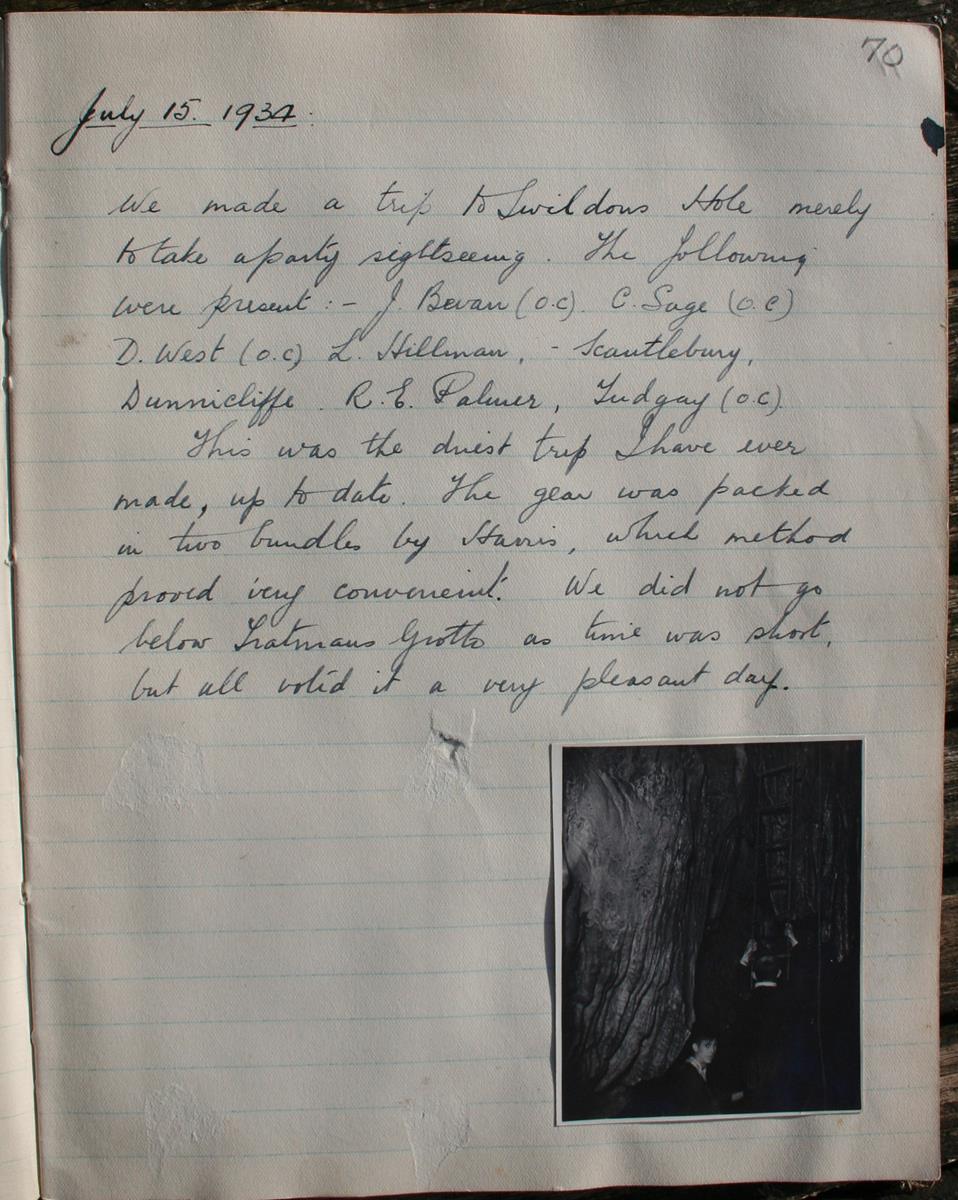 70
July 15. 1934.
We made a trip to Swildons Hole merely
to take a party sightseeing. The following
were present :- J. Bevan (o.c). C. Sage (o.c)
D. West (o.c) L. Hillman, - Scantlebury,
Dunnicliffe. R. E. Palmer, Tudgay (o.c).
This was the driest trip I have ever
made, up to date. The gear was packed
in two bundles by Harris, which method
proved very convenient. We did not go
below Tratmans Grotto as time was short,
but all voted it a very pleasant day.